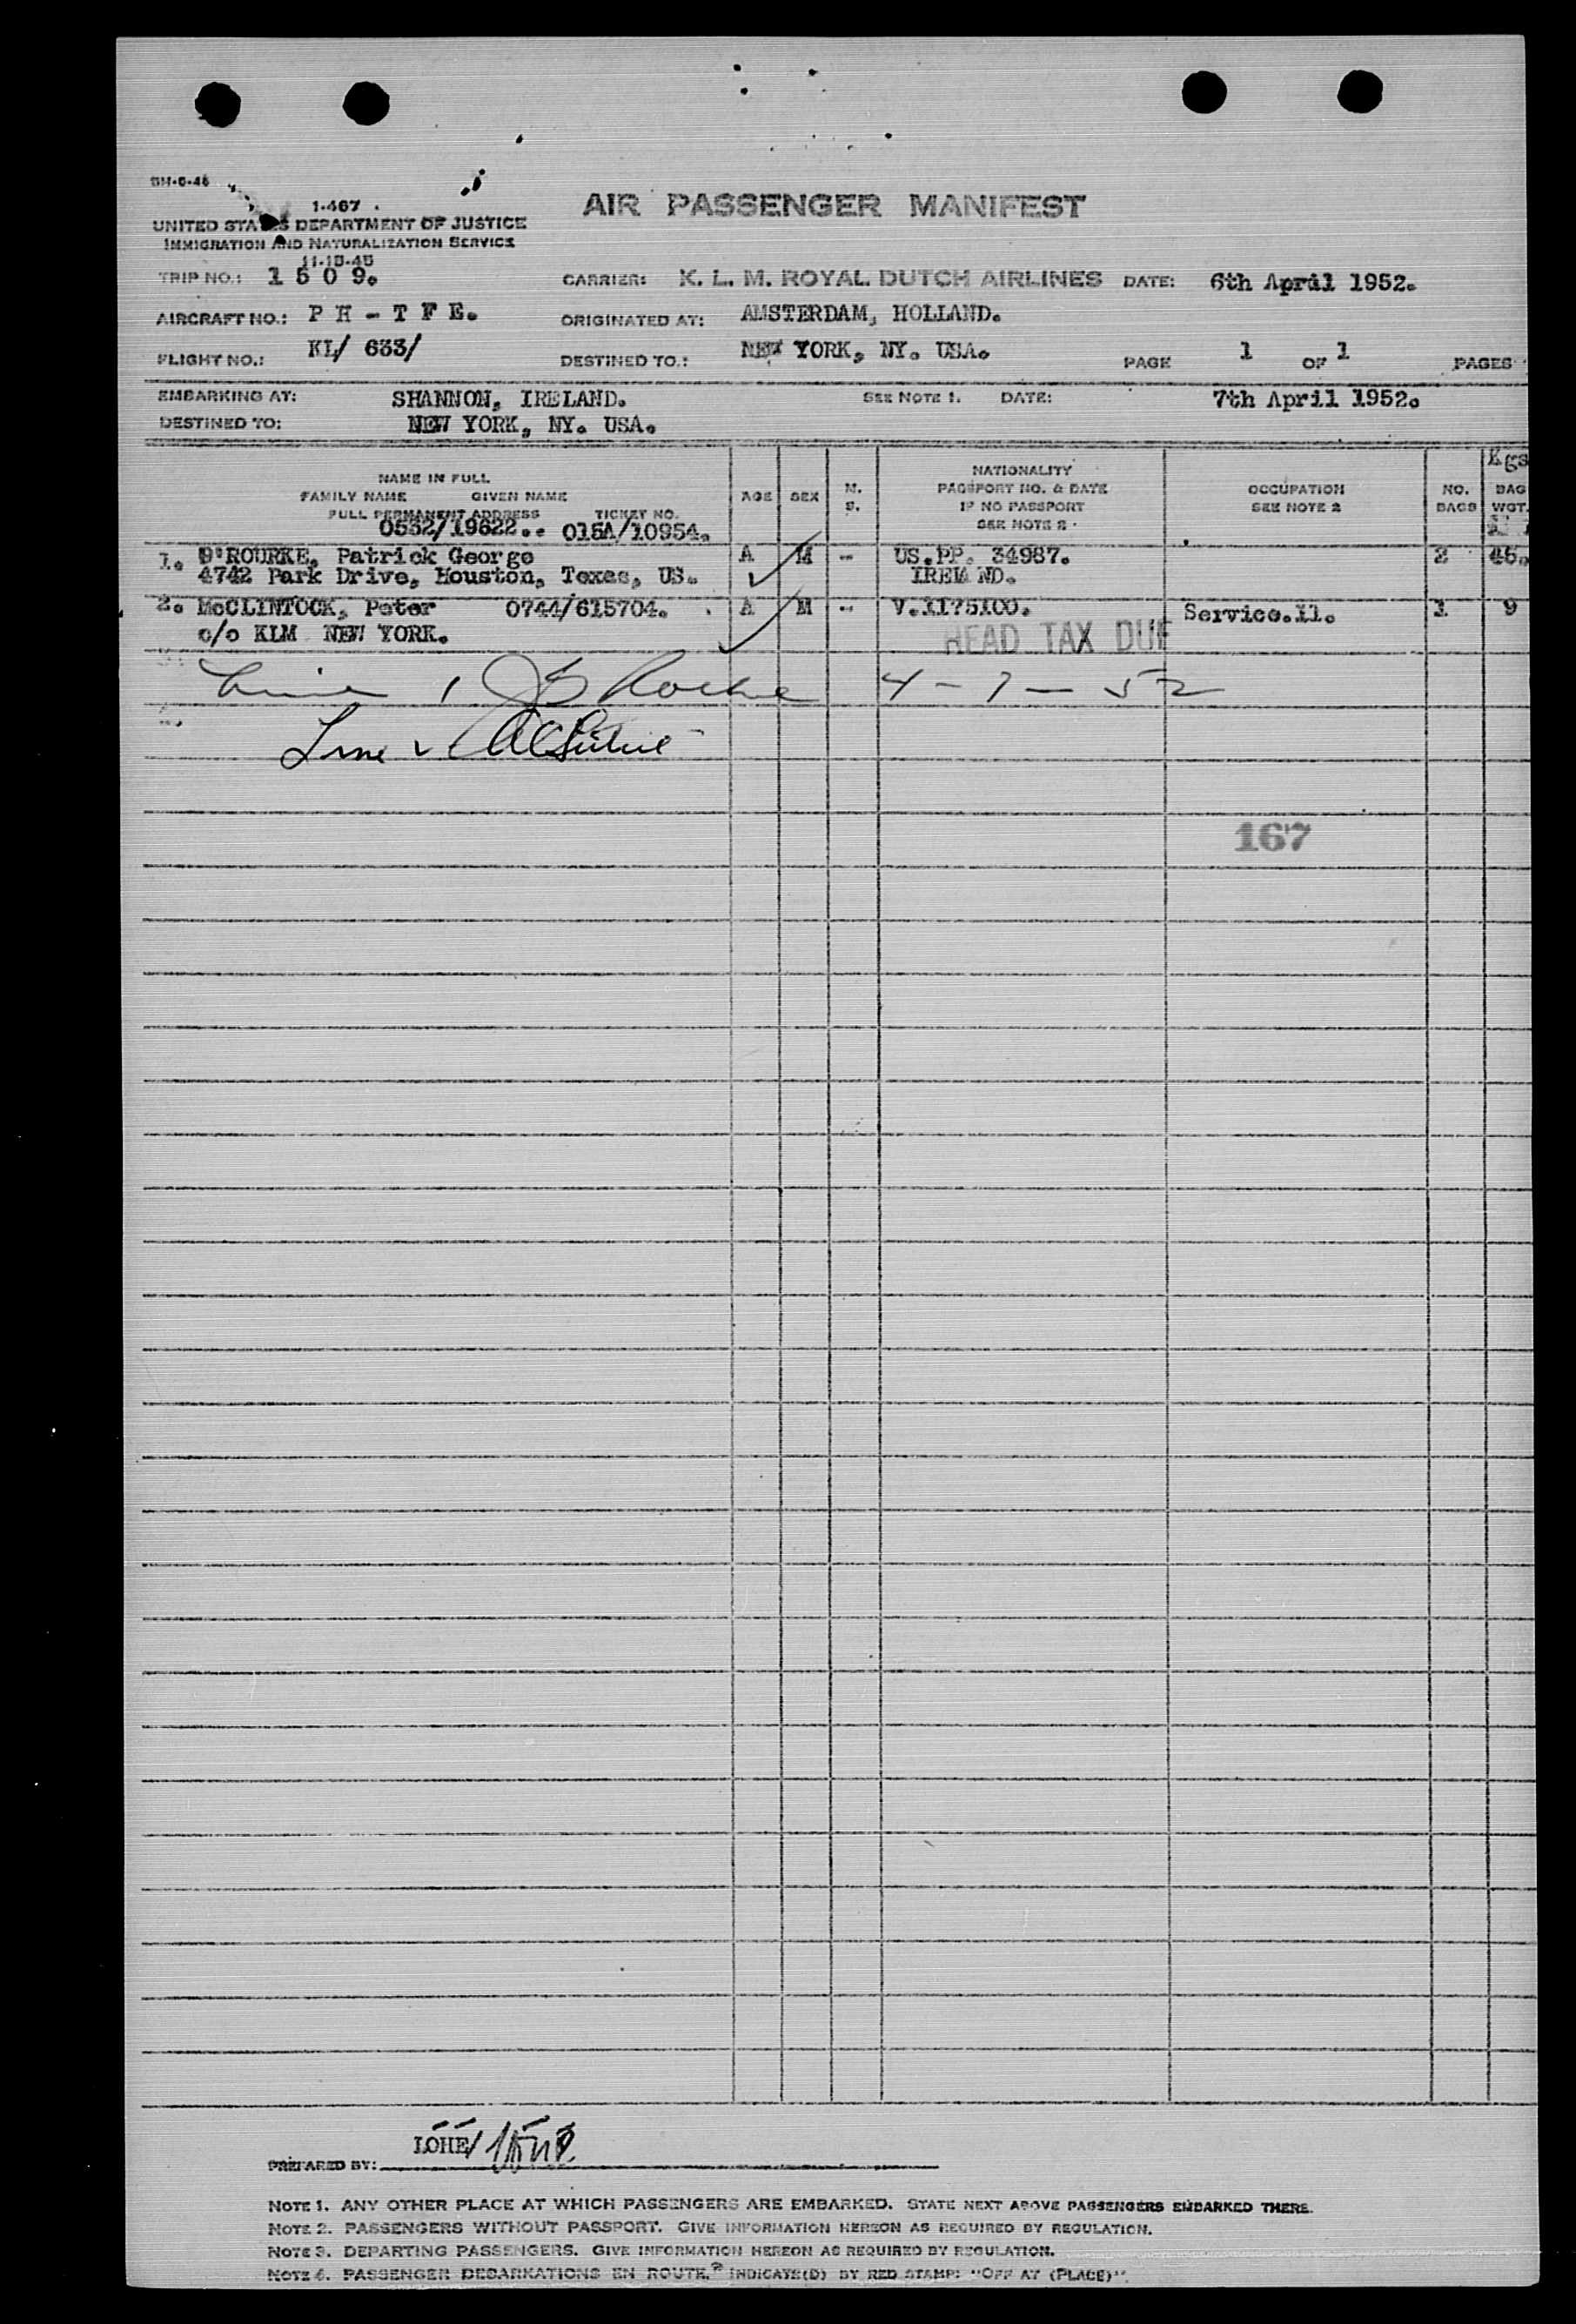 AIR PASSENGER MANIFEST
1-467
UNITED STATES DEPARTMENT OF JUSTICE
IMMIGRATION AND NATURALIZATION SERVICE
11-15-45
TRIP NO.: 1 5 0 9. CARRIER: K. L. M. ROYAL DUTCH AIRLINES DATE: 6th April 1952.
AIRCRAFT NO.: P H - T F E. ORIGINATED AT: AMSTERDAM, HOLLAND.
FLIGHT NO.: KL/ 633/ DESTINED TO.: NEW YORK, NY. USA. PAGE 1 OF 1 PAGES
EMBARKING AT: SHANNON, IRELAND. SEE NOTE 1. DATE: 7th April 1952.
DESTINED TO: NEW YORK, NY. USA.
NAME IN FULL
FAMILY NAME GIVEN NAME
FULL PERMANENT ADDRESS TICKET NO.
AGE SEX M. S.
NATIONALITY
PASSPORT NO. & DATE
IF NO PASSPORT
SEE NOTE 2
OCCUPATION
SEE NOTE 2
NO. BAGS
Kgs
BAG WGT.
0532/19622.. 015A/10954.
1. O'ROURKE, Patrick George A M - US.PP. 34987. 2 45.
4742 Park Drive, Houston, Texas, US. IRELAND.
2. McCLINTOCK, Peter 0744/615704. A M - V.1175100. Service.11. 1 9
c/o KLM NEW YORK. HEAD TAX DUE
4-7-52
167
PREPARED BY: LOHE/
NOTE 1. ANY OTHER PLACE AT WHICH PASSENGERS ARE EMBARKED. STATE NEXT ABOVE PASSENGERS EMBARKED THERE.
NOTE 2. PASSENGERS WITHOUT PASSPORT. GIVE INFORMATION HEREON AS REQUIRED BY REGULATION.
NOTE 3. DEPARTING PASSENGERS. GIVE INFORMATION HEREON AS REQUIRED BY REGULATION.
NOTE 4. PASSENGER DEBARKATIONS EN ROUTE. INDICATE(D) BY RED STAMP: "OFF AT (PLACE)".